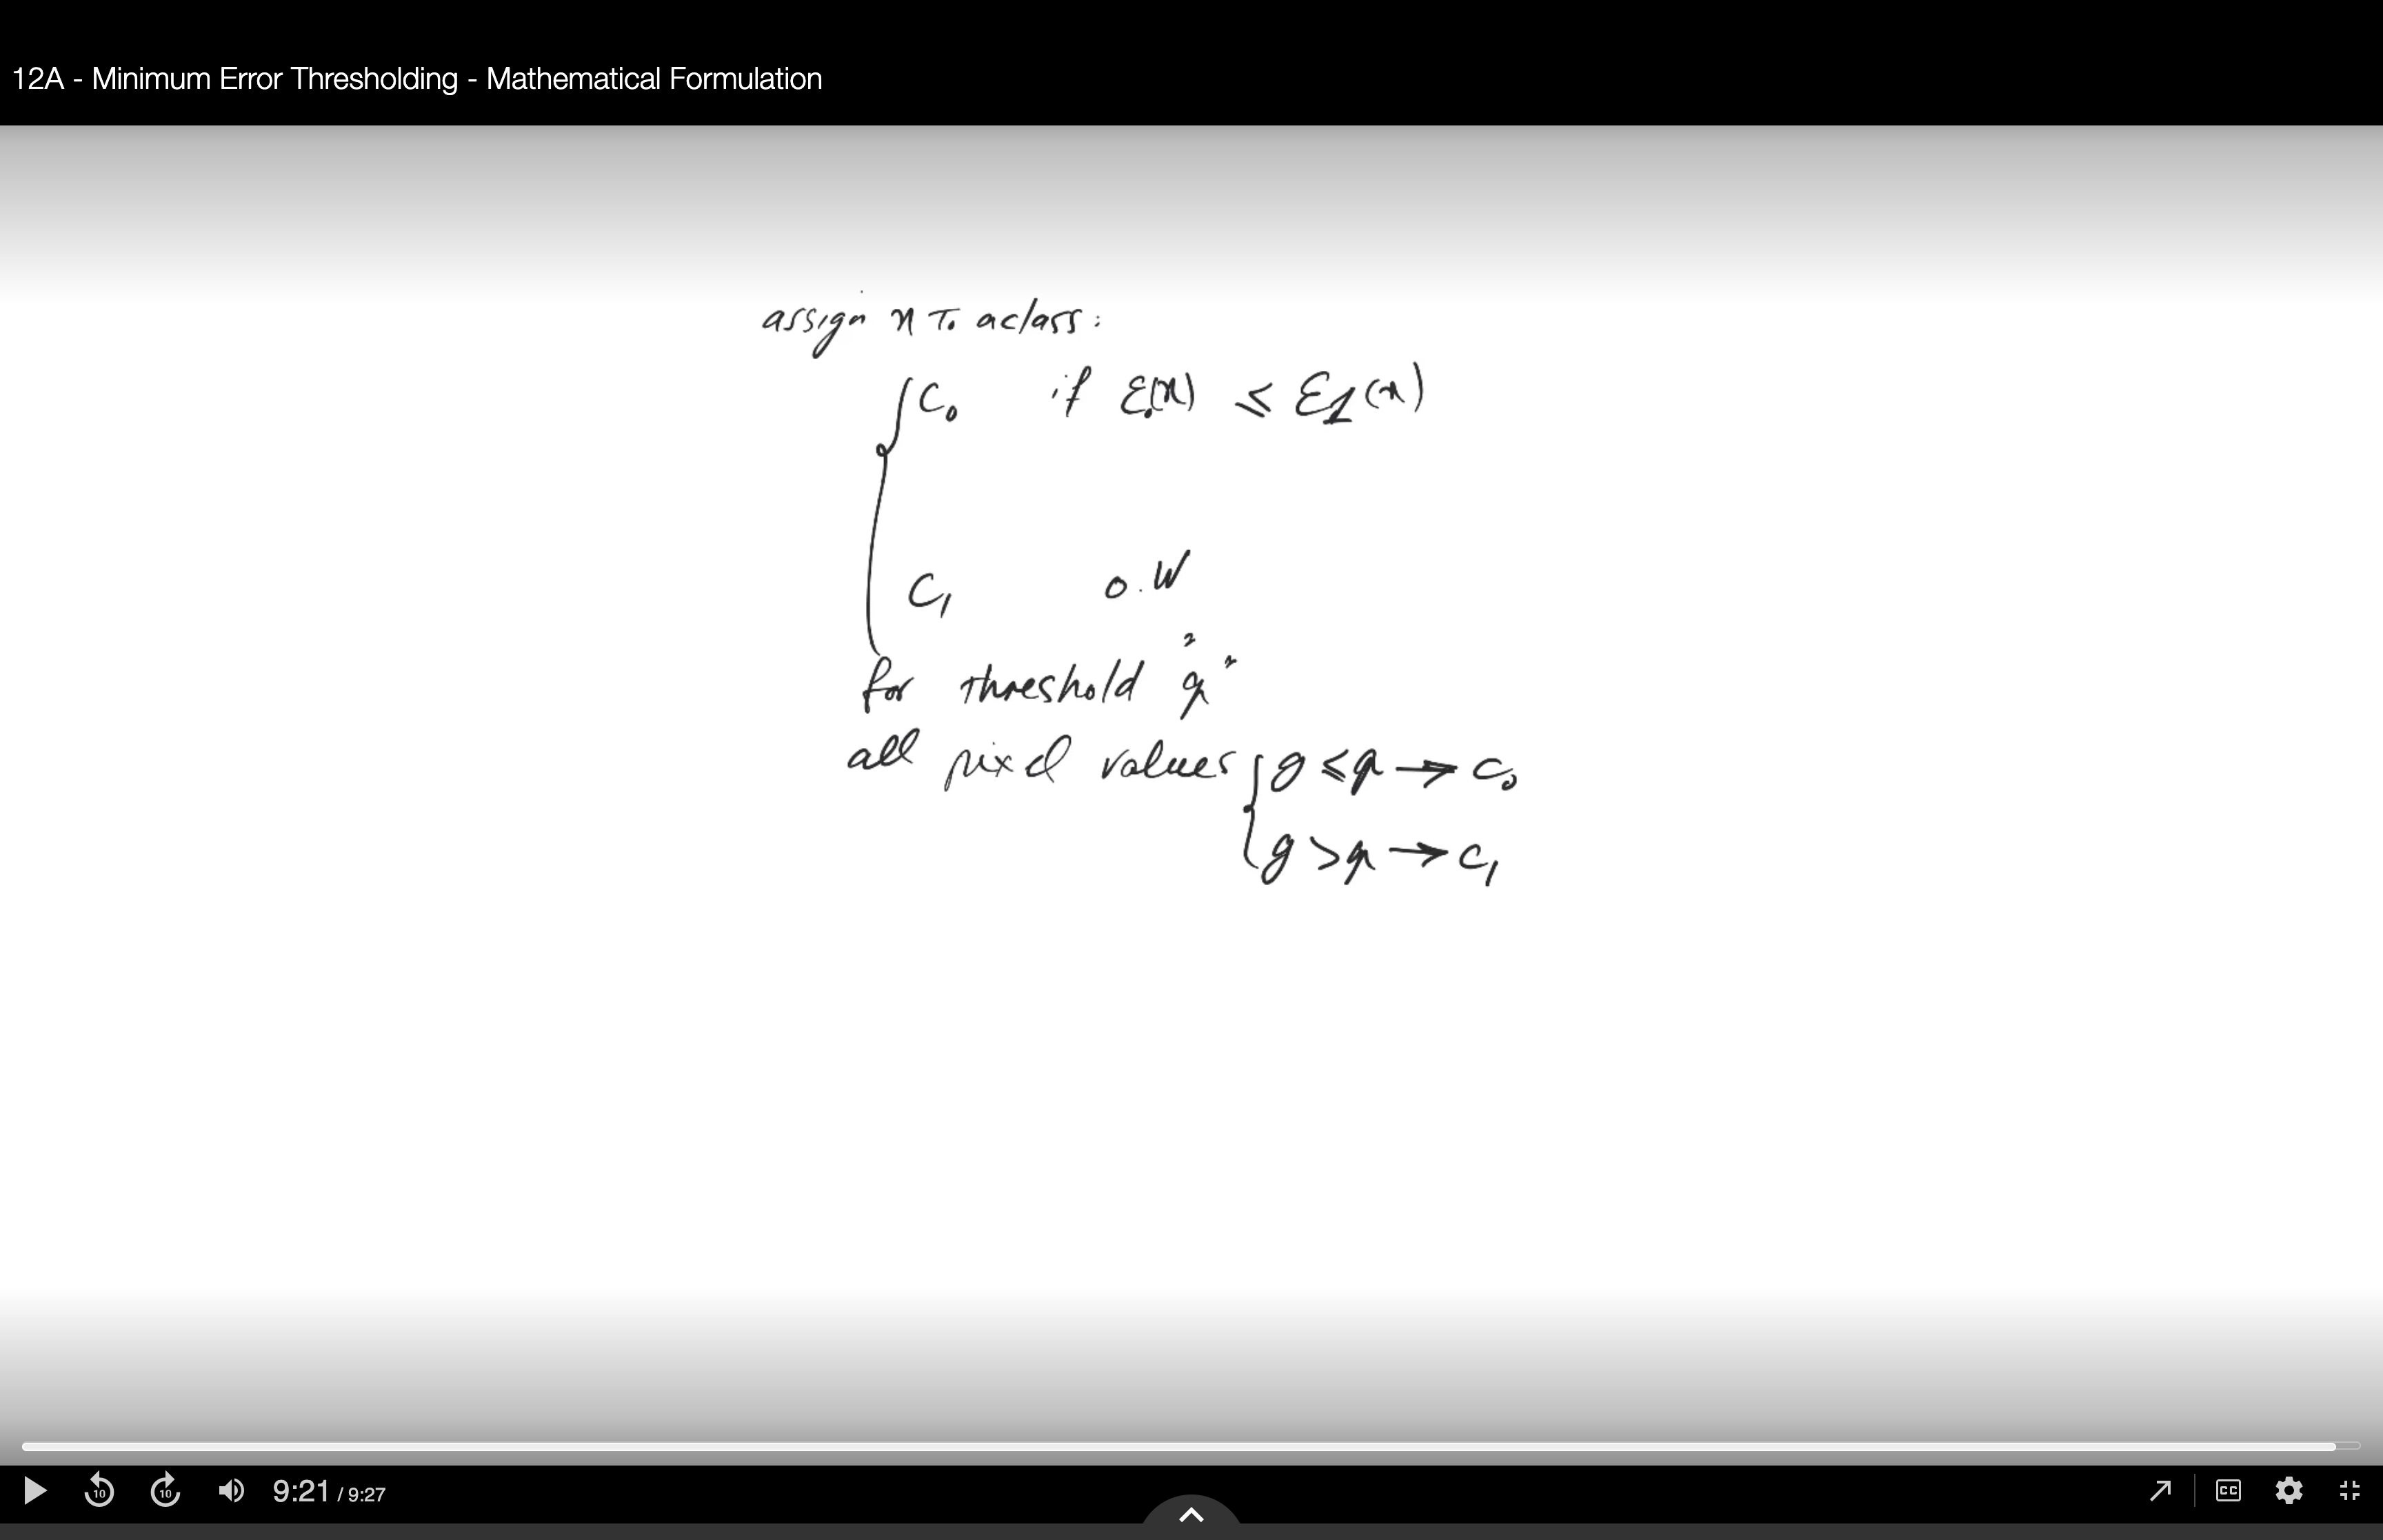 12A - Minimum Error Thresholding - Mathematical Formulation
assign x To a class:
C₀ if ε₀(x) ≤ ε₁(x)
C₁ o.w
for threshold "q"
all pixel values { g ≤ q → C₀
g > q → C₁
10 10 9:21 / 9:27 CC